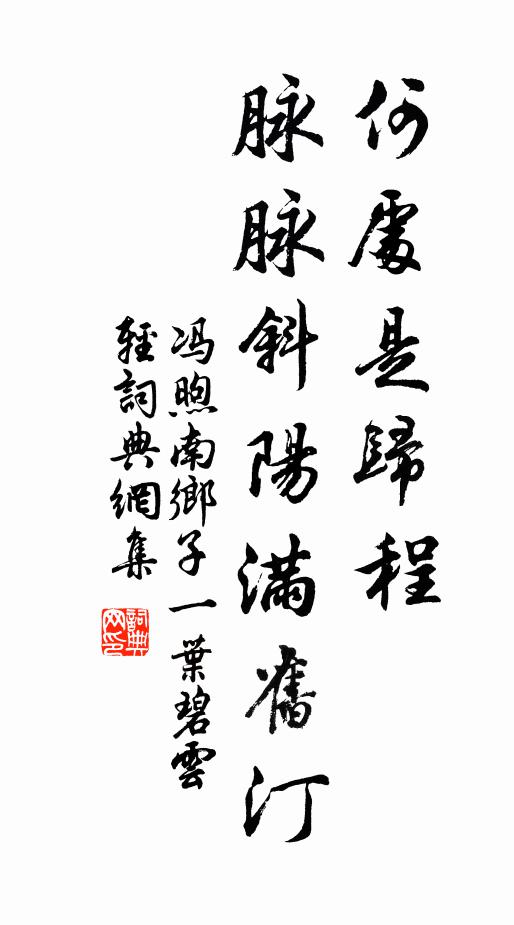 何處是歸程
脉脉斜陽滿舊汀
冯煦南鄉子一葉碧雲
輕詞典網集
詞典